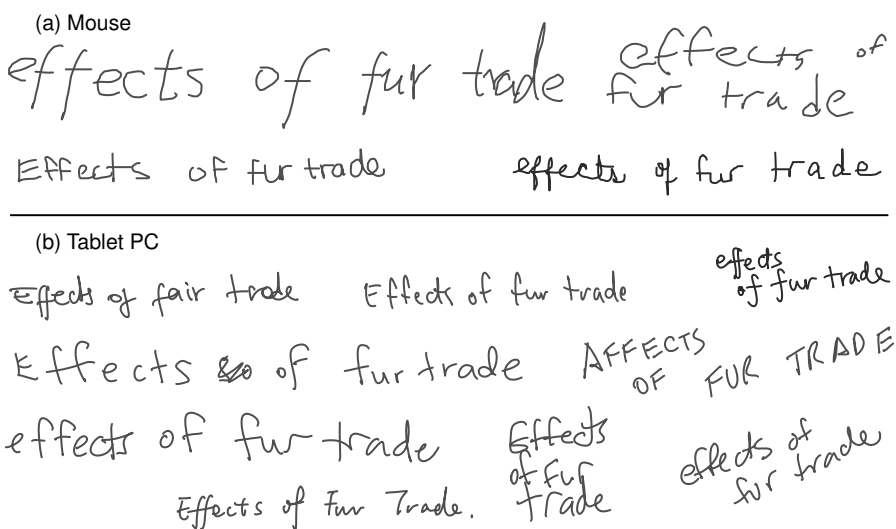 (a) Mouse
effects of fur trade
effects of
fur trade
Effects of fur trade
effects of fur trade
(b) Tablet PC
Effects of fair trade
Effects of fur trade
effects
of fur trade
Effects of fur trade
AFFECTS
OF FUR TRADE
effects of fur trade
Effects
of Fur
trade
effects of
fur trade
Effects of Fur Trade.